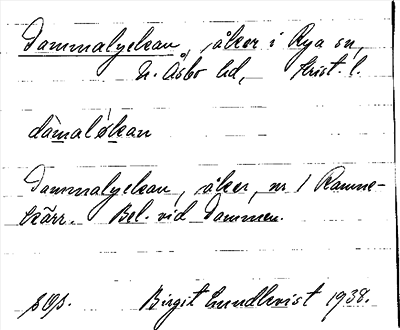 Dammalyckan, åker i Rya sn,
N. Åsbo hd, Krist. l.
dàmaløkan
Dammalyckan, åker, nr 1 Ramne-
kärr. Bel. vid Dammen.
Birgit Lundkvist 1938.